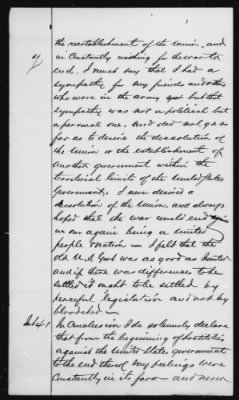 the reestablishment of the union, and
in Constantly wishing for the war to
end. I must say that I had a
sympathy for my friends and
who were in the army but that
sympathy was not a political but
a personal one. and did not go so
far as to desire the dissolution of
the Union or the establishment of
another government within the
territorial limits of the United States
Government, I never desired a
dissolution of the Union, and always
hoped that the war would end
in our again being a united
people & nation — I felt that the
old U.S. Govt was as good as I wanted
and if there was differences to be
settled it ought to be settled by
peaceful legislation and not by
bloodshed —
In Conclusion I do solemnly declare
that from the beginning of hostilities
against the United States government
to the end thereof my feelings were
Constantly in its favor — and never